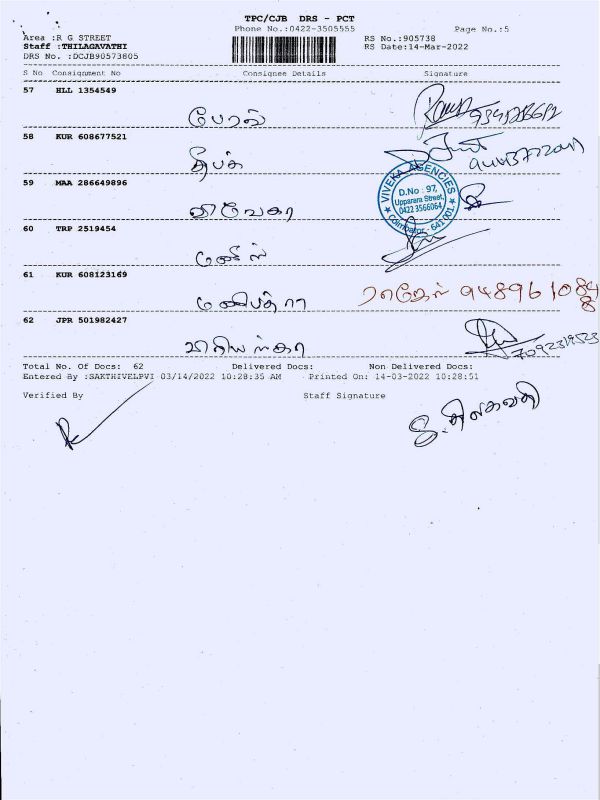 TPC/CJB DRS - PCT
Phone No.:0422-3505555 Page No.:5
Area :R G STREET RS No.:905738
Staff :THILAGAVATHI RS Date:14-Mar-2022
DRS No. :DCJB90573805
S No Consignment No Consignee Details Signature
57 HLL 1354549
58 KUR 608677521
தீபக்
59 MAA 286649896
விவேகா
VIVEKA AGENCIES
D.No : 97,
Upparara Street,
0422 3566064
Coimbatore - 641 001
60 TRP 2519454
61 KUR 608123169
94896 1084
62 JPR 501982427
7092319523
Total No. Of Docs: 62 Delivered Docs: Non Delivered Docs:
Entered By :SAKTHIVELPVI 03/14/2022 10:28:35 AM Printed On: 14-03-2022 10:28:51
Verified By Staff Signature